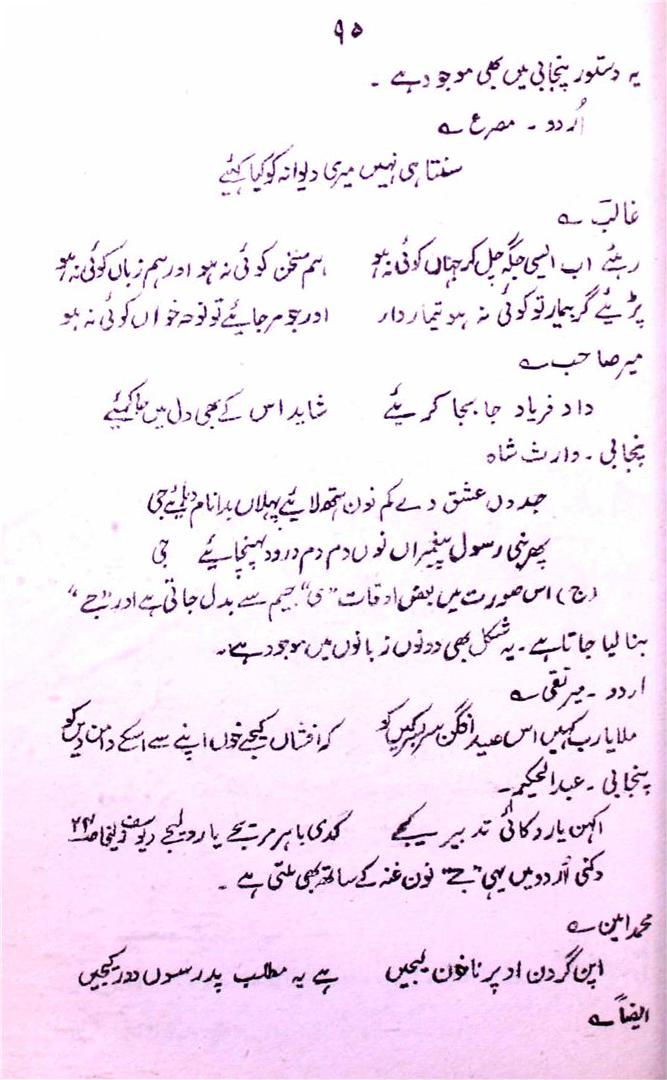 ۹۵
یہ دستور پنجابی میں بھی موجود ہے ۔
اُردو ۔ مصرع ؎
سنتا ہی نہیں میری دیوانہ کو کیا کہئیے
غالب ؎
رہئے اب ایسی جگہ چل کر جہاں کوئی نہ ہو ہم سخن کوئی نہ ہو اور ہم زباں کوئی نہ ہو
پڑیئے گر بیمار تو کوئی نہ ہو تیماردار اور جو مر جایئے تو نوحہ خواں کوئی نہ ہو
میر صاحب ؎
داد فریاد جا بجا کریئے شاید اس کے بھی دل میں جا کیئے
پنجابی ۔ وارث شاہ
جدوں عشق دے کم نون ہتھ لائیے پہلاں نام جی
پھر نبی رسول پیغمبراں نوں دم دم درود پہنچایئے جی
(ج) اس صورت میں بعض اوقات "ی" جیم سے بدل جاتی ہے اور "جے"
بنا لیا جاتا ہے ۔ یہ شکل بھی دونوں زبانوں میں موجود ہے ۔
اردو ۔ میر تقی ؎
ملا یارب کہیں اس صید افگن سر بسر کیں کو کہ افشاں کیجے خوں اپنے سے اسکے دامن زیں کو
پنجابی ۔ عبدالحکیم ۔
اکہن یارو کائی تدبیر کیجے کدی باہر یارو لیجے (یوسف زلیخا صـ ۲۴
دکنی اُردو میں یہی "جے" نون غنہ کے ساتھ بھی ملتی ہے ۔
محمد امین ؎
اپن گردن اوپر نا خون لیجیں ہے یہ مطلب پدر سوں دور کیجیں
ایضاً ؎